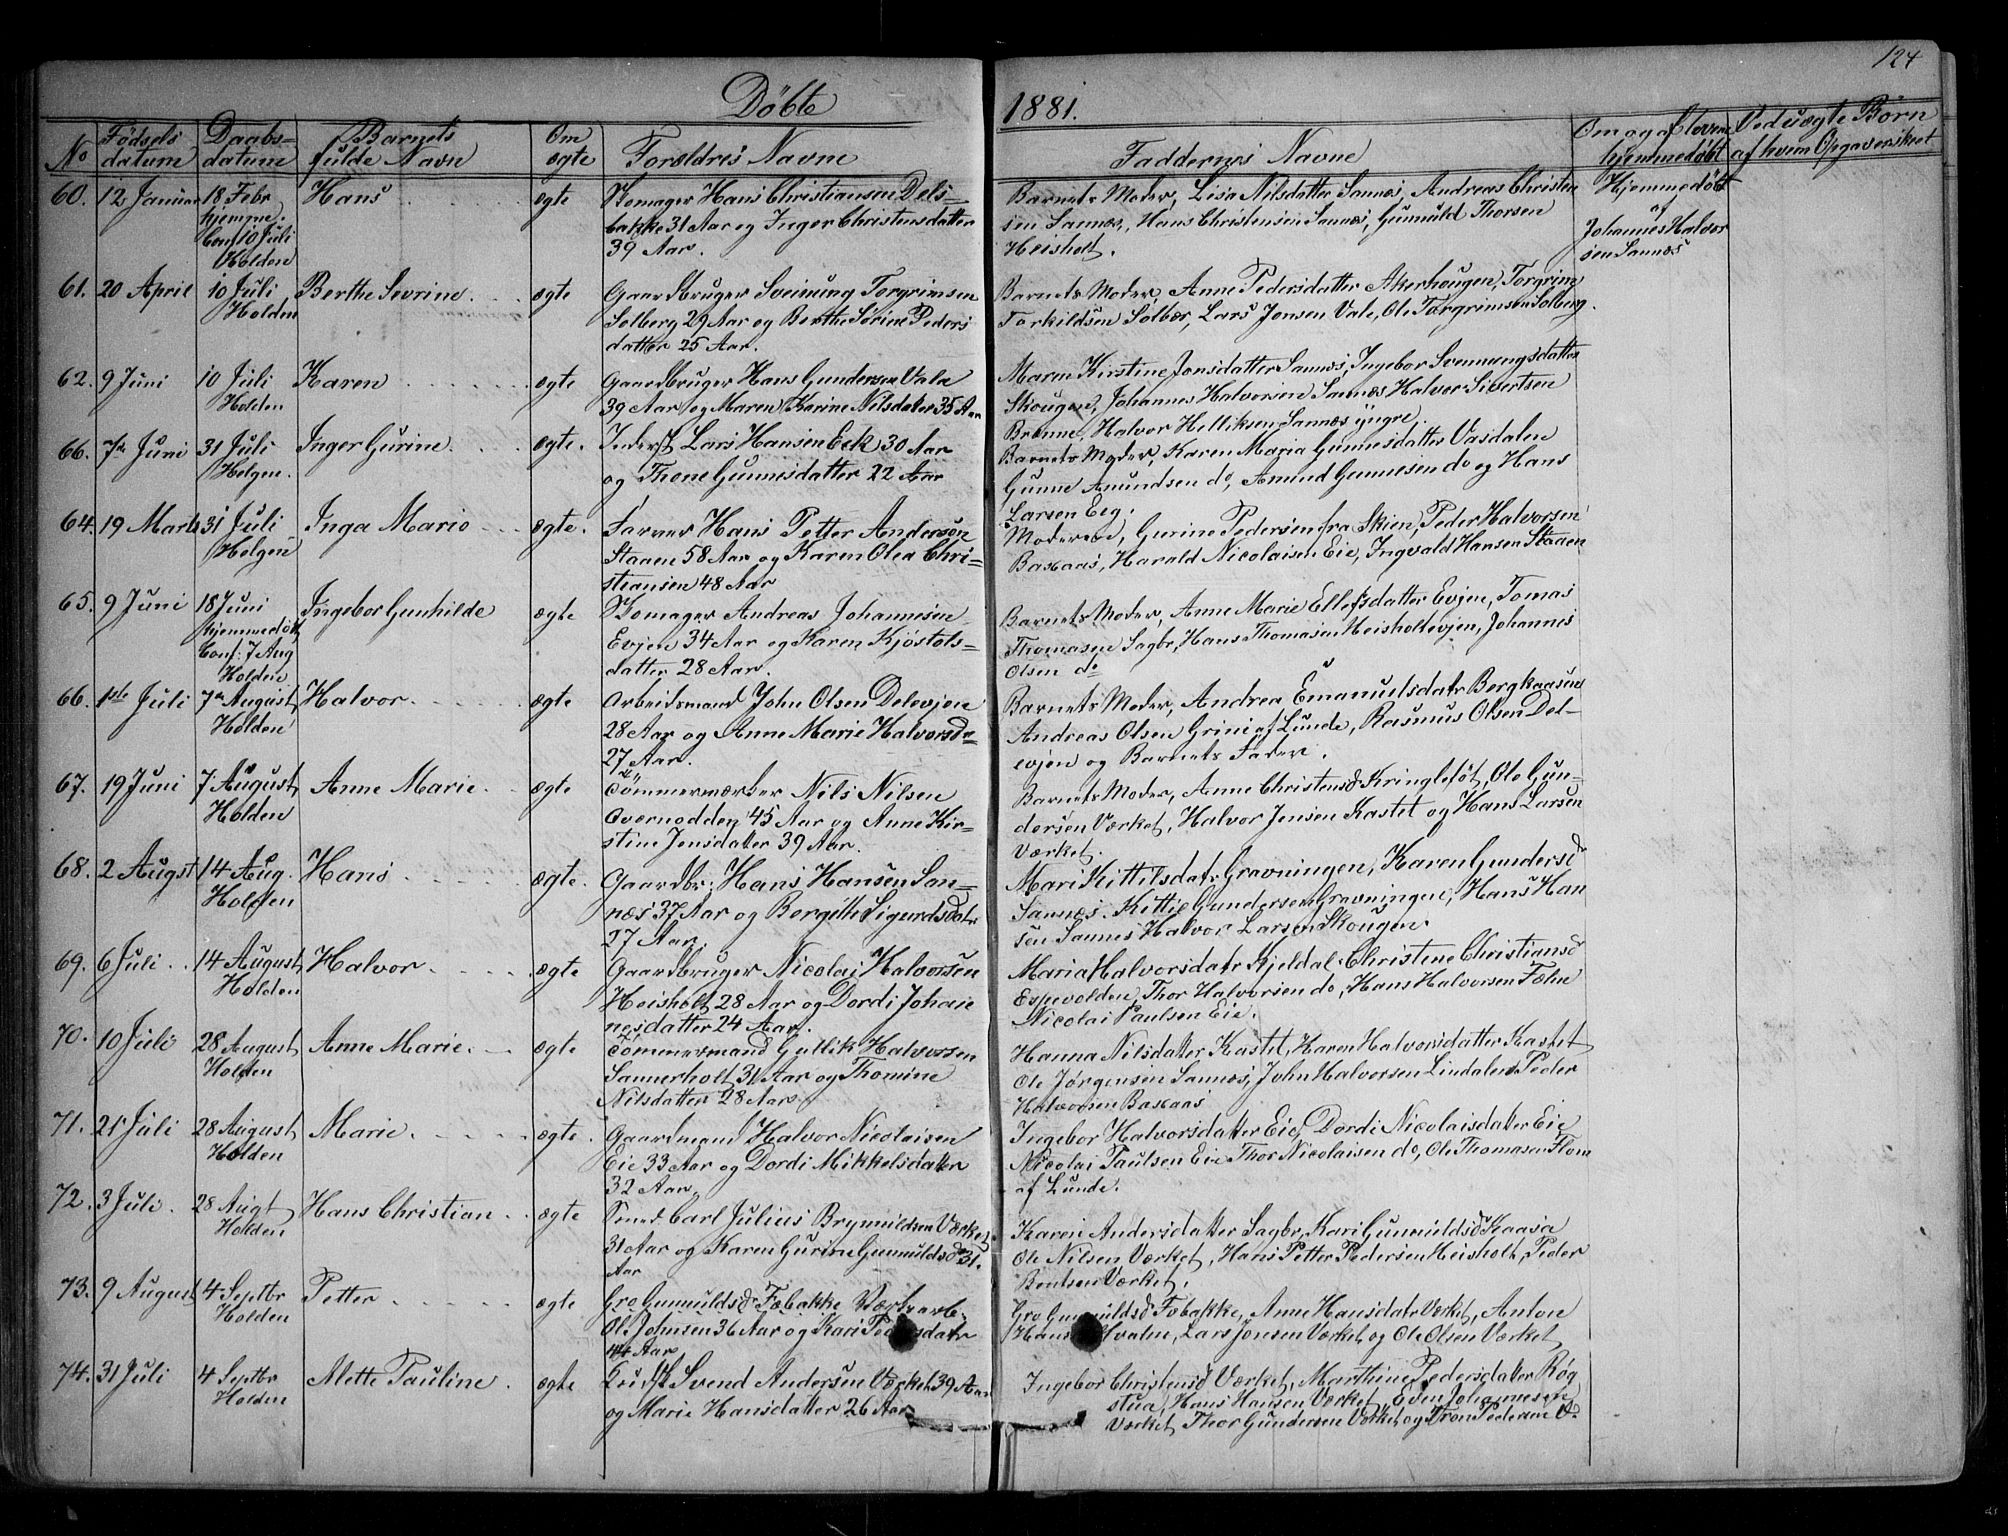 124
Döbte 1881.
No
Födsels datum
Daabs-datum
Barnets fulde Navn
Om ægte
Forældres Navne
Faddernes Navne
Om og af hvem hjemmedöbt
Ved uægte Börn af hvem Opgaver skeet
60. 12 Januar 18 Febr hjemme. Conf 10 Juli Holden Hans ægte
Skomager Hans Christiansen Dels-
bakke 31 Aar og Inger Christensdatter
39 Aar.
Barnets Moder, Lisa Nilsdatter Sannes, Andreas Christen
sen Sannæs, Hans Christensen Sannæs, Gunuld Thorsen
Heisholt.
Hjemmedöbt
af
Johannes Halvor
sen Sannæs
61. 20 April 10 Juli Holden Berthe Sevrine ægte
Gaardbruger Sveinung Torgrimsen
Solberg 29 Aar og Berthe Sörine Peders
datter 25 Aar.
Barnets Moder, Anne Pedersdatter Akerhougen, Torgrim
Torkildsen Solbær, Lars Jonsen Vale, Ole Torgrimsen Solberg.
62. 9 Juni 10 Juli Holden Karen ægte
Gaardbruger Hans Gundersen Vala
39 Aar og Maren Karine Nilsdatter 35 Aar
Maren Kirstine Jonsdatter Sannæs, Ingebor Svennungsdatter
Skougen, Johannes Halvorsen Sannæs Halvor Sivertsen
Brenne, Halvor Helliksen Sannæs yngre.
66. 7de Juni 31 Juli Helgen. Inger Gurine ægte.
Inderst Lars Hansen Eek 30 Aar
og Thone Gunnesdatter 22 Aar
Barnets Moder, Karen Maria Gunnesdatter Vasdalen
Gunne Amundsen do, Amund Gunnesen do og Hans
Larsen Eeg.
64. 19 Marts 31 Juli Helgen Inga Marie ægte.
Farver Hans Petter Andersön
Staaen 58 Aar og Karen Olea Chri-
stiansen 48 Aar
Moderen, Gurine Pedersen fra Skien, Peder Halvorsen
Baskaas, Harald Nicolaisen Eie, Ingvald Hansen Staaen
65. 9 Juni 18 Juni hjemmedöbt Conf: 7 Aug Holden Ingebor Gunhilde ægte
Skomager Andreas Johannesen
Evjen 34 Aar og Karen Kjöstols-
datter 28 Aar.
Barnets Moder, Anne Marie Ellefsdatter Evjen, Tomas
Thomasen Sagbr, Hans Thomasen Heisholtevjen, Johannes
Olsen do
66. 1ste Juli 7de August Holden Halvor ægte
Arbeidsmand John Olsen Delevjen
28 Aar og Anne Marie Halvorsdr
27 Aar.
Barnets Moder, Andrea Emanuelsdatr Bergkaasen
Andreas Olsen Grini af Lunde, Rasmus Olsen Del-
evjen og Barnets Fader.
67. 19 Juni 7. August Holden Anne Marie ægte
Tömmermærker Nils Nilsen
Overnodden 45 Aar og Anne Kir-
stine Jensdatter 39 Aar.
Barnets Moder, Anne Christensd Kringleföt, Ole Gun-
dersen Værket, Halvor Jensen Kastet og Hans Larsen
Værket.
68. 2 Augst 14 Aug. Holden Hans ægte.
Gaardbr. Hans Hansen San-
næs 37 Aar og Bergithe Sigurdsdatr
27 Aar.
Mari Kittilsdatr Gravningen, Karen Gundersd
Sannæs. Kittil Gundersen Gravningen, Hans Han
sen Sannes Halvor Larsen Skougen
69. 6 Juli 14 August Holden Halvor ægte
Gaardbruger Nicolai Halvorsen
Heisholt 28 Aar og Dordi Johan
nesdatter 24 Aar.
Maria Halvorsdatr Kjeldal Christine Christiansd
Espevolden, Thor Halvorsen do, Hans Halvorsen Fæhn
Nicolai Paulsen Eie.
70. 10 Juli 28 August Holden Anne Marie ægte
Tömmermand Gullik Halvorsen
Sannerholt 31 Aar og Thomine
Nilsdatter 28 Aar
Hanna Nilsdatter Kastet, Karen Halvorsdatter Kastet
Ole Jörgensen Sannæs, John Halvorsen Lindalen Peder
Halvorsen Baskaas
71. 21 Juli 28 August Holden Marie ægte.
Gaardmand Halvor Nicolaisen
Eie 33 Aar og Dordi Mikkelsdatter
32 Aar.
Ingebor Halvorsdatter Eie, Dordi Nicolaisdatter Eie
Nicolai Paulsen Eie Thor Nicolaisen do, Ole Thomasen Flom
af Lunde.
72. 3 Juli. 28 Augt Holden Hans Christian ægte
Smed Carl Julius Brynuldsen Værket
31 Aar og Karen Gurine Gunnuldsdr 31.
Aar
Karen Andersdatter Sagbr, Kari Gunuldsd Kaasa
Ole Nilsen Værket, Hans Petter Pedersen Heisholt, Peder
Bentsen Værket.
73. 9 August 4 Septbr Holden Petter ægte
Gro Gunuldsd Fæbakke Værksarb.
Ole Johnsen 36 Aar og Kari Pedersdatr
44 Aar
Gro Gunuldsd Fæbakke, Anne Hansdatr Værket, Anton
Hansen Hvalen, Lars Jonsen Værket og Ole Olsen Værket
74. 31 Juli 4 Septbr Holden Mette Pauline ægte
Svend Andersen Værket 39 Aar
og Marie Hansdatter 26 Aar
Ingebor Christensd Værket, Marthine Pedersdatter Rög
stua, Hans Hansen Værket, Even Johannesen
Værket, Thor Gundersen Værket og Tron Pedersen V.